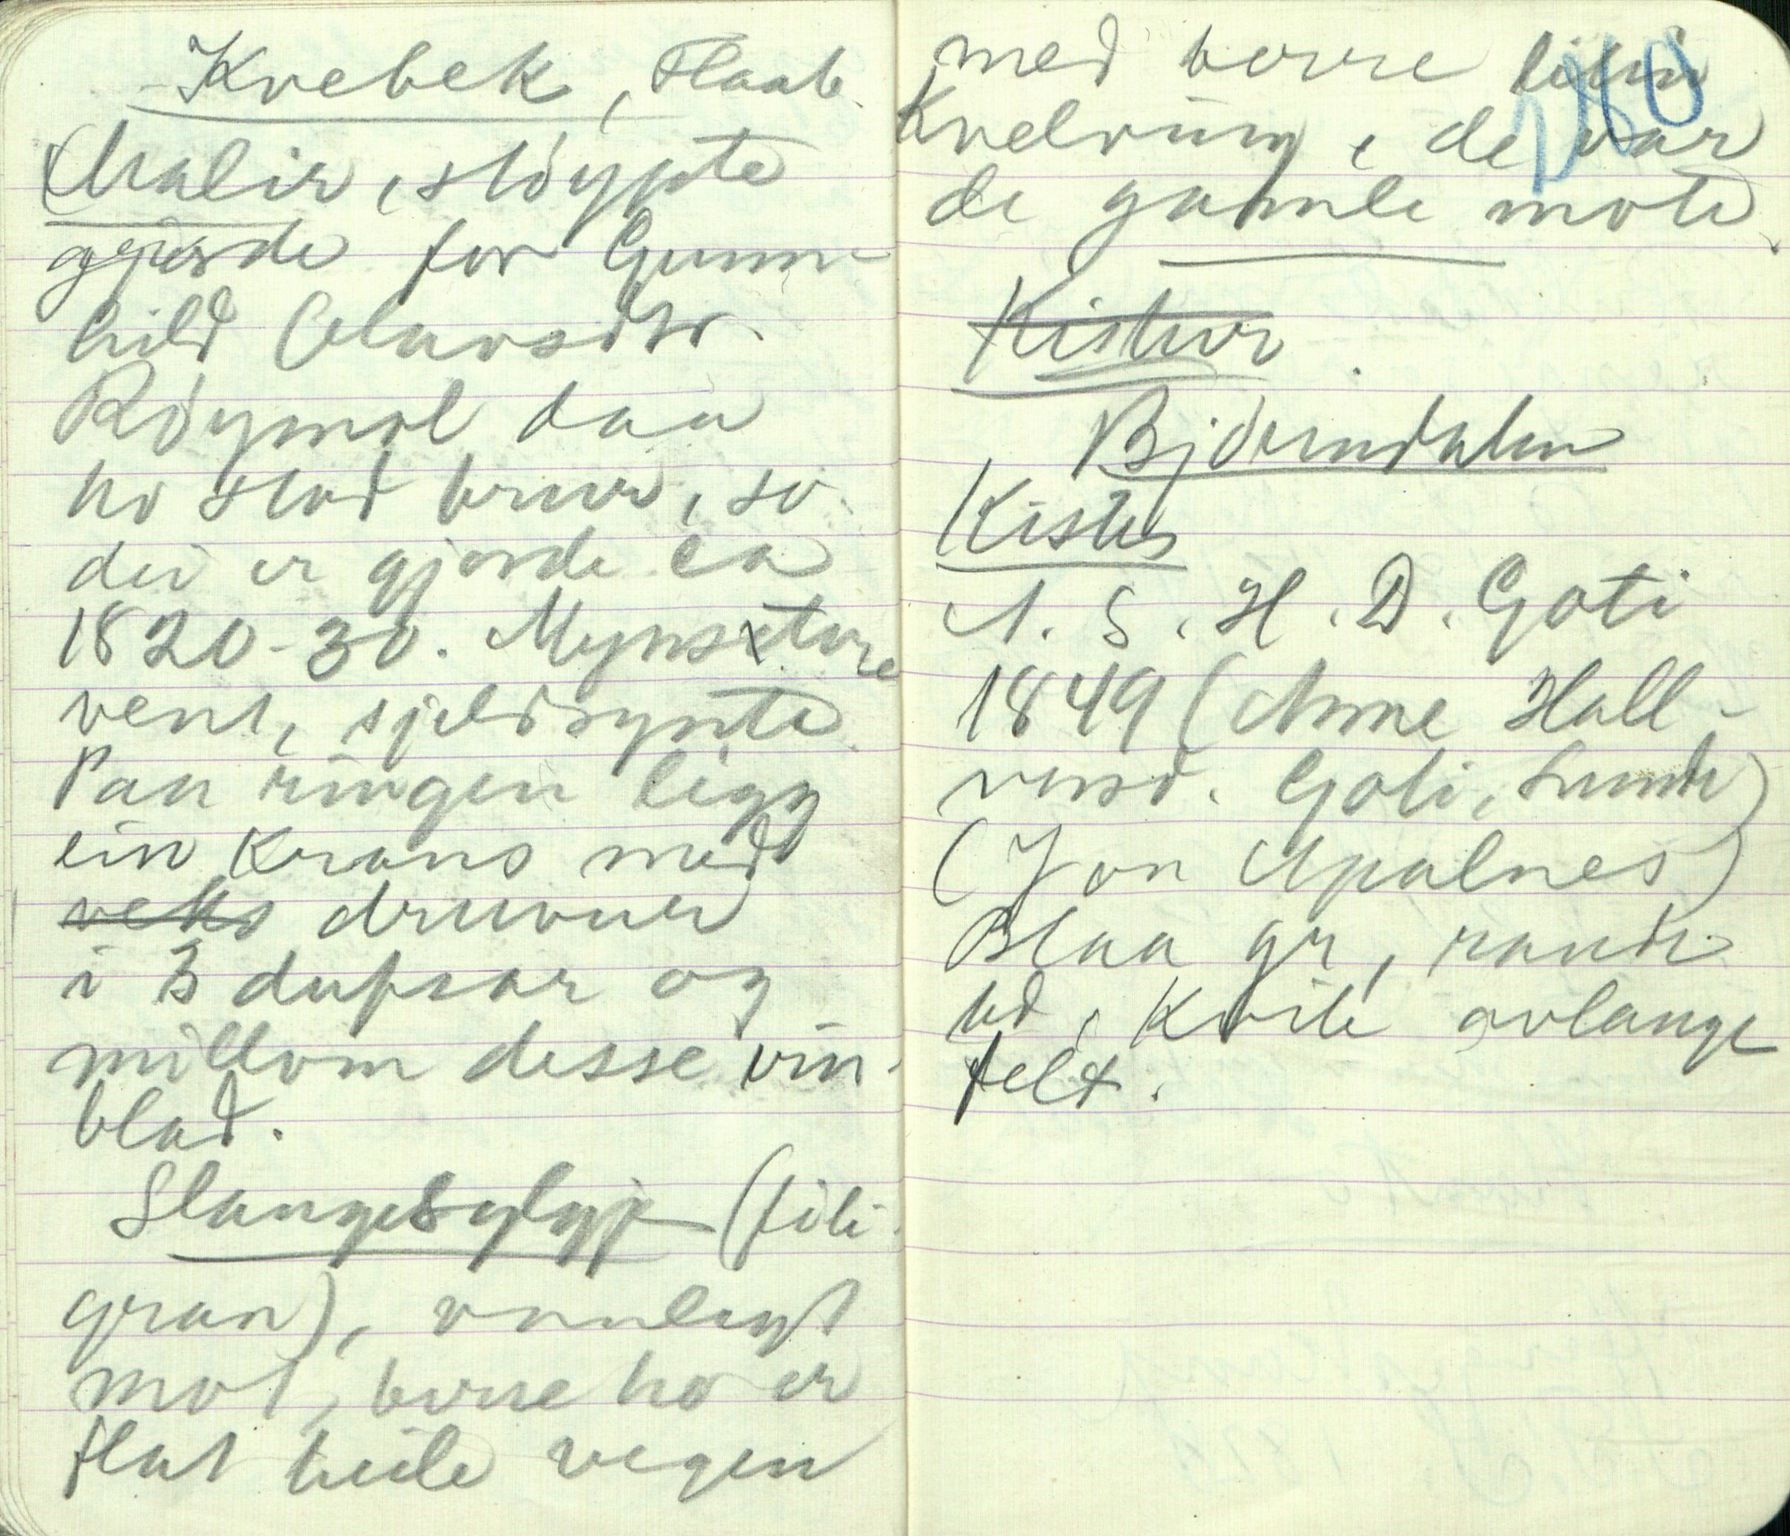 Kvebek, Flaab.
Malir, støypte
gjorde for Gunn-
hild Olavsdtr.
Røymol daa
ho stod brur, so
dei er gjorde ca
1820-30. Mynstre
vent, sjeldsynte
Paa ringen ligg
ein Krans med
veks druvur
i 3 dufsar og
millom desse vin-
blad.
Slangesylgje (fili-
gran), vanlegt
mot, berre ho er
flat heile vegen
med berre liti
Kvelving, de var
de gamle mote.
180
Kistur
Bjørndalen
Kiste
A. S. H. D. Goti
1849 (Anne Hall-
vensd. Goti, Lunde)
(Jon Upalnes)
Blaa gr, raude
bd, Kvite avlange
felt.